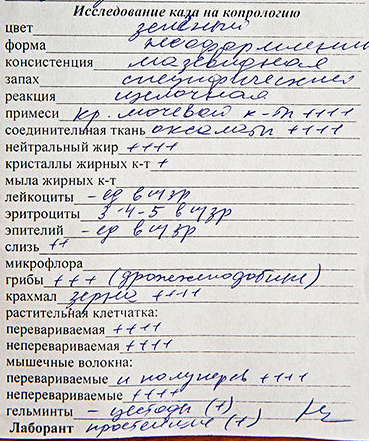 Исследование кала на копрологию
цвет зелёный
форма неоформленный
консистенция мазевидная
запах специфический
реакция щелочная
примеси кр. мочевой к-ты ++++
соединительная ткань оксалаты ++++
нейтральный жир ++++
кристаллы жирных к-т +
мыла жирных к-т
лейкоциты - ед в п/зр
эритроциты 3-4-5 в п/зр
эпителий - ед в п/зр
слизь ++
микрофлора
грибы +++ (дрожжеподобные)
крахмал зерна ++++
растительная клетчатка:
перевариваемая ++++
неперевариваемая ++++
мышечные волокна:
перевариваемые и полуперев ++++
непереваримые ++++
гельминты - цестоды (+)
Лаборант простейшие (+)